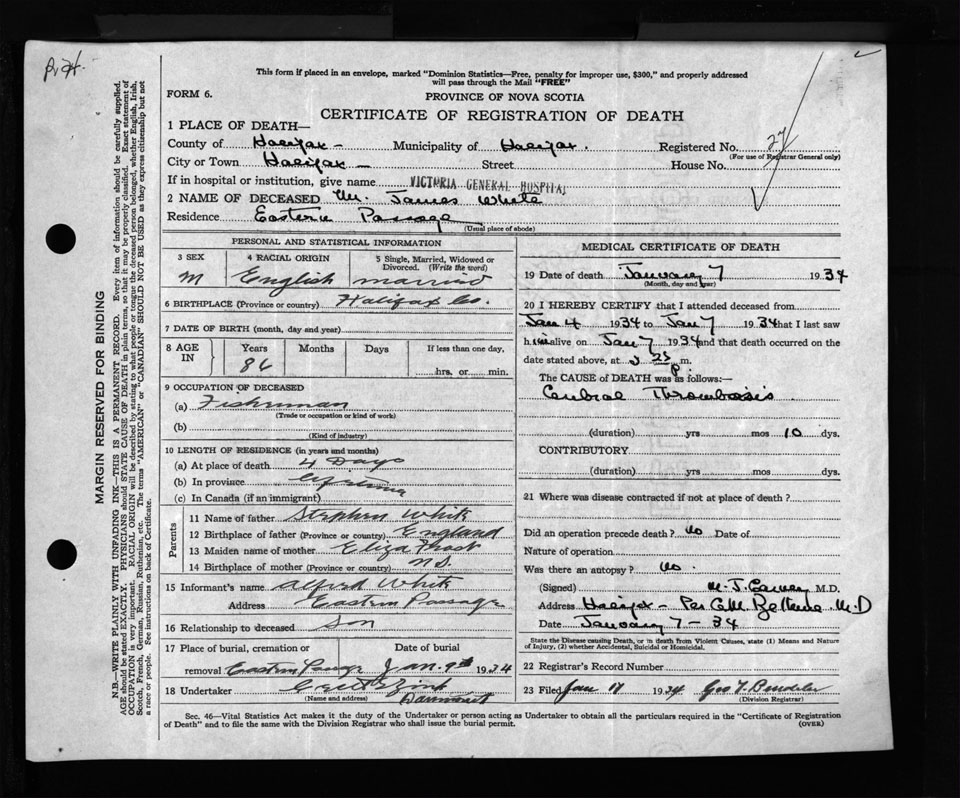 This form if placed in an envelope, marked "Dominion Statistics—Free, penalty for improper use, $300," and properly addressed
will pass through the Mail "FREE"
FORM 6.
PROVINCE OF NOVA SCOTIA
CERTIFICATE OF REGISTRATION OF DEATH
1 PLACE OF DEATH—
County of Halifax — Municipality of Halifax. Registered No. 27
(For use of Registrar General only)
City or Town Halifax — Street House No.
If in hospital or institution, give name VICTORIA GENERAL HOSPITAL
2 NAME OF DECEASED Mr. James White
Residence Eastern Passage
(Usual place of abode)
PERSONAL AND STATISTICAL INFORMATION
3 SEX 4 RACIAL ORIGIN 5 Single, Married, Widowed or Divorced. (Write the word)
M English married
6 BIRTHPLACE (Province or country) Halifax Co.
7 DATE OF BIRTH (month, day and year)
8 AGE IN Years Months Days If less than one day,
86 hrs. or min.
9 OCCUPATION OF DECEASED
(a) Fisherman
(Trade or occupation or kind of work)
(b)
(Kind of industry)
10 LENGTH OF RESIDENCE (in years and months)
(a) At place of death 4 Days
(b) In province Lifetime
(c) In Canada (if an immigrant)
Parents
11 Name of father Stephen White
12 Birthplace of father (Province or country) England
13 Maiden name of mother Eliza
14 Birthplace of mother (Province or country) N S.
15 Informant's name Alfred White
Address Eastern Passage
16 Relationship to deceased Son
17 Place of burial, cremation or Date of burial
removal Eastern Passage Jan. 9th 1934
18 Undertaker
(Name and address)
MEDICAL CERTIFICATE OF DEATH
19 Date of death January 7 1934
(Month, day and year)
20 I HEREBY CERTIFY that I attended deceased from
Jan 4 1934 to Jan 7 1934 that I last saw
him alive on Jan 7 1934 and that death occurred on the
date stated above, at p m.
The CAUSE OF DEATH was as follows:—
Cerebral Thrombosis
(duration) yrs mos 10 dys.
CONTRIBUTORY
(duration) yrs mos dys.
21 Where was disease contracted if not at place of death?
Did an operation precede death? no Date of
Nature of operation
Was there an autopsy? No.
(Signed) M.D.
Address Halifax - Per M.D
Date January 7 - 34
State the Disease causing Death, or in death from Violent Causes, state (1) Means and Nature
of Injury, (2) whether Accidental, Suicidal or Homicidal.
22 Registrar's Record Number
23 Filed Jan 1934 Geo
(Division Registrar)
Sec. 46—Vital Statistics Act makes it the duty of the Undertaker or person acting as Undertaker to obtain all the particulars required in the "Certificate of Registration
of Death" and to file the same with the Division Registrar who shall issue the burial permit. (OVER)
MARGIN RESERVED FOR BINDING
N.B.—WRITE PLAINLY WITH UNFADING INK—THIS IS A PERMANENT RECORD. Every item of information should be carefully supplied.
AGE should be stated EXACTLY. PHYSICIANS should STATE CAUSE OF DEATH in plain terms, so that it may be properly classified. Exact statement of
OCCUPATION is very important. RACIAL ORIGIN will be described by stating to what people or tongue the deceased person belonged, whether English, Irish,
Scotch, French, German, Russian, Ruthenian, etc. The terms "AMERICAN" or "CANADIAN" SHOULD NOT BE USED as they express citizenship but not
a race or people. See instructions on back of Certificate.